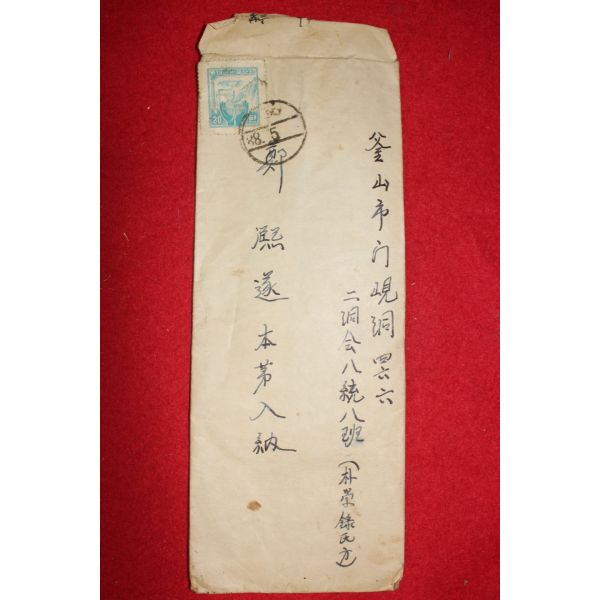 釜山市门峴洞 四六六
二洞会八統八班 (朴榮錄氏方)
鄭熙遂本第入納
20
5